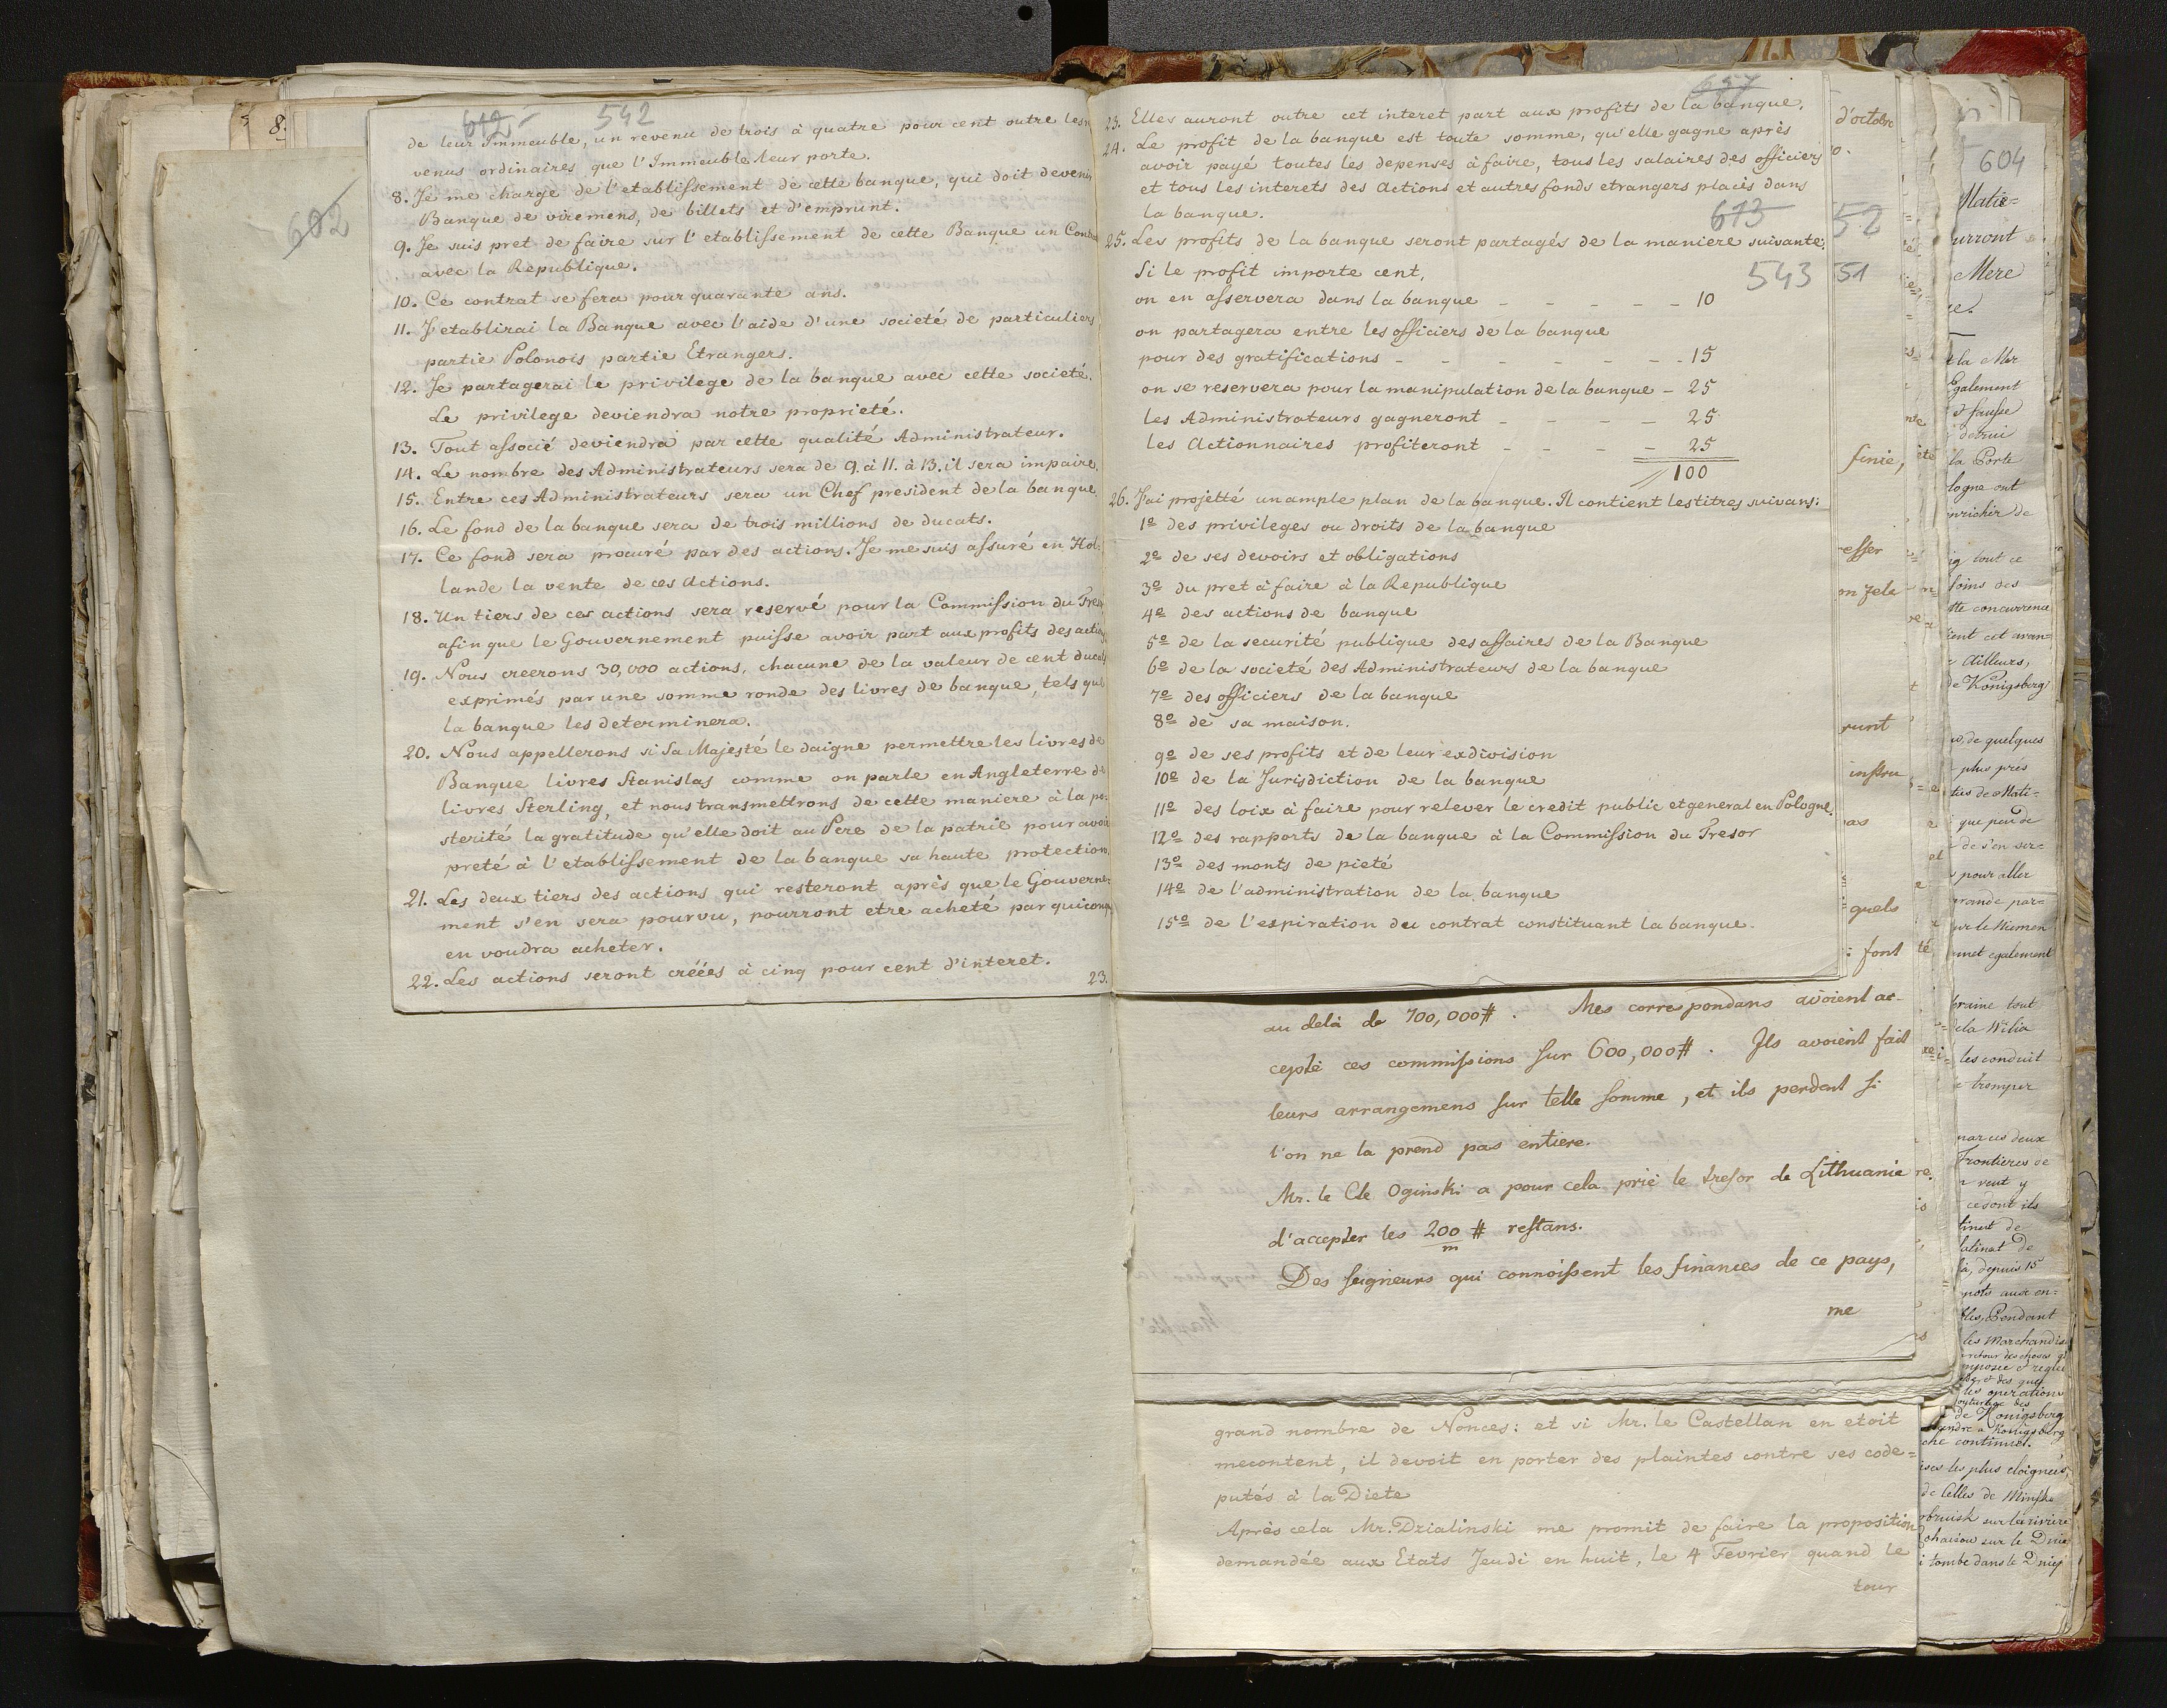 612 542
de leur Immeuble, un revenu de trois à quatre pour cent outre les re
venus ordinaires que l'Immeuble leur porte.
8. Je me charge de l'etablissement de cette banque, qui doit devenir
Banque de viremens, de billets et d'emprunt.
9. Je suis pret de faire sur l'etablissement de cette Banque un Cont
avec la Republique.
10. Ce contrat se fera pour quarante ans.
11. J'etablirai la Banque avec l'aide d'une societé de particuliers
partie Polonois partie Etrangers.
12. Je partagerai le privilege de la banque avec cette societé.
Le privilege deviendra notre proprieté.
13. Tout associé deviendra par cette qualité Administrateur.
14. Le nombre des Administrateurs sera de 9. à 11. à 13. il sera impaire.
15. Entre ces Administrateurs sera un Chef president de la banque
16. Le fond de la banque sera de trois millions de ducats.
17. Ce fond sera procuré par des actions. Je me suis assuré en Hol=
lande la vente de ces actions.
18. Un tiers de ces actions sera reservé pour la Commission du Tresor
afin que le Gouvernement puisse avoir part aux profits des actions
19. Nous creerons 30,000 actions, chacune de la valeur de cent ducats
exprimés par une somme ronde des livres de banque, tels que
la banque les determinera.
20. Nous appellerons si Sa Majesté le daigne permettre les livres de
Banque livres Stanislas comme on parle en Angleterre de
livres Sterling, et nous transmettrons de cette maniere à la po=
sterité la gratitude qu'elle doit au Pere de la patrie pour avoir
preté à l'etablissement de la banque sa haute protection.
21. Les deux tiers des actions qui resteront après que le Gouverne=
ment s'en sera pourvu, pourront etre acheté par quiconq
en voudra acheter.
22. Les actions seront créées à cinq pour cent d'interet.
23.
602
8.
23. Elles auront outre cet interet part aux profits de la banque.
24. Le profit de la banque est toute somme, qu'elle gagne après
avoir payé toutes les depenses à faire, tous les salaires des officiers
et tous les interets des actions et autres fonds etrangers placés dans
la banque.
613
25. Les profits de la banque seront partagés de la maniere suivante.
Si le profit importe cent,
543
on en asservera dans la banque - - - - - 10
on partagera entre les officiers de la banque
pour des gratifications - - - - - - - 15
on se reservera pour la manipulation de la banque - 25
les Administrateurs gagneront - - - - 25
les Actionnaires profiteront - - - - 25
100
26. J'ai projetté un ample plan de la banque. Il contient les titres suivans:
1o des privileges ou droits de la banque
2o de ses devoirs et obligations
3o du pret à faire à la Republique
4o des actions de banque
5o de la securité publique des affaires de la Banque
6o de la societé des Administrateurs de la banque
7o des officiers de la banque
8o de sa maison.
9o de ses profits et de leur exdivision
10o de la Jurisdiction de la banque
11o des loix à faire pour relever le credit public et general en Pologne.
12o des rapports de la banque à la Commission du Tresor
13o des monts de pieté
14o de l'administration de la banque
15o de l'expiration du contrat constituant la banque.
au delà de 700,000#. Mes correspondans avoient ac-
cepté ces commissions sur 600,000#. Ils avoient fait
leurs arrangemens sur telle somme, et ils perdent si
l'on ne la prend pas entiere.
Mr. le Cte Oginski a pour cela prié le tresor de Lithuanie
d'accepter les 200/m # restans.
Des seigneurs qui connoissent les finances de ce pays,
me
grand nombre de Nonces: et si Mr. le Castellan en etoit
mecontent, il devoit en porter des plaintes contre ses code=
putés à la Diete
Après cela Mr. Dzialinski me promit de faire la proposition
demandée aux Etats Jeudi en huit, le 4 Fevrier quand le
tour
d'octobre
52
51
finie,
quels
font
604
Matie=
urront
Mere
la Mer
Egalement
et fausse
la Porte
logne ont
nrichir de
tout ce
soins des
concurrence
cet avan=
Ailleurs,
de Königsberg
de quelques
plus près
de Mati=
que peu de
de s'en ser=
pour aller
grande par=
sur le Niemen
egalement
tout
la Wilia
les conduit
tromper
par ces deux
Frontieres de
veut y
ce dont ils
de
latinat de
depuis 15
aux en=
Pendant
les Marchandis
les operations
de Königsberg
continuel.
les plus eloignées,
de Celles de Minsk
sur la riviere
sur le Dnie
tombe dans le Dniep